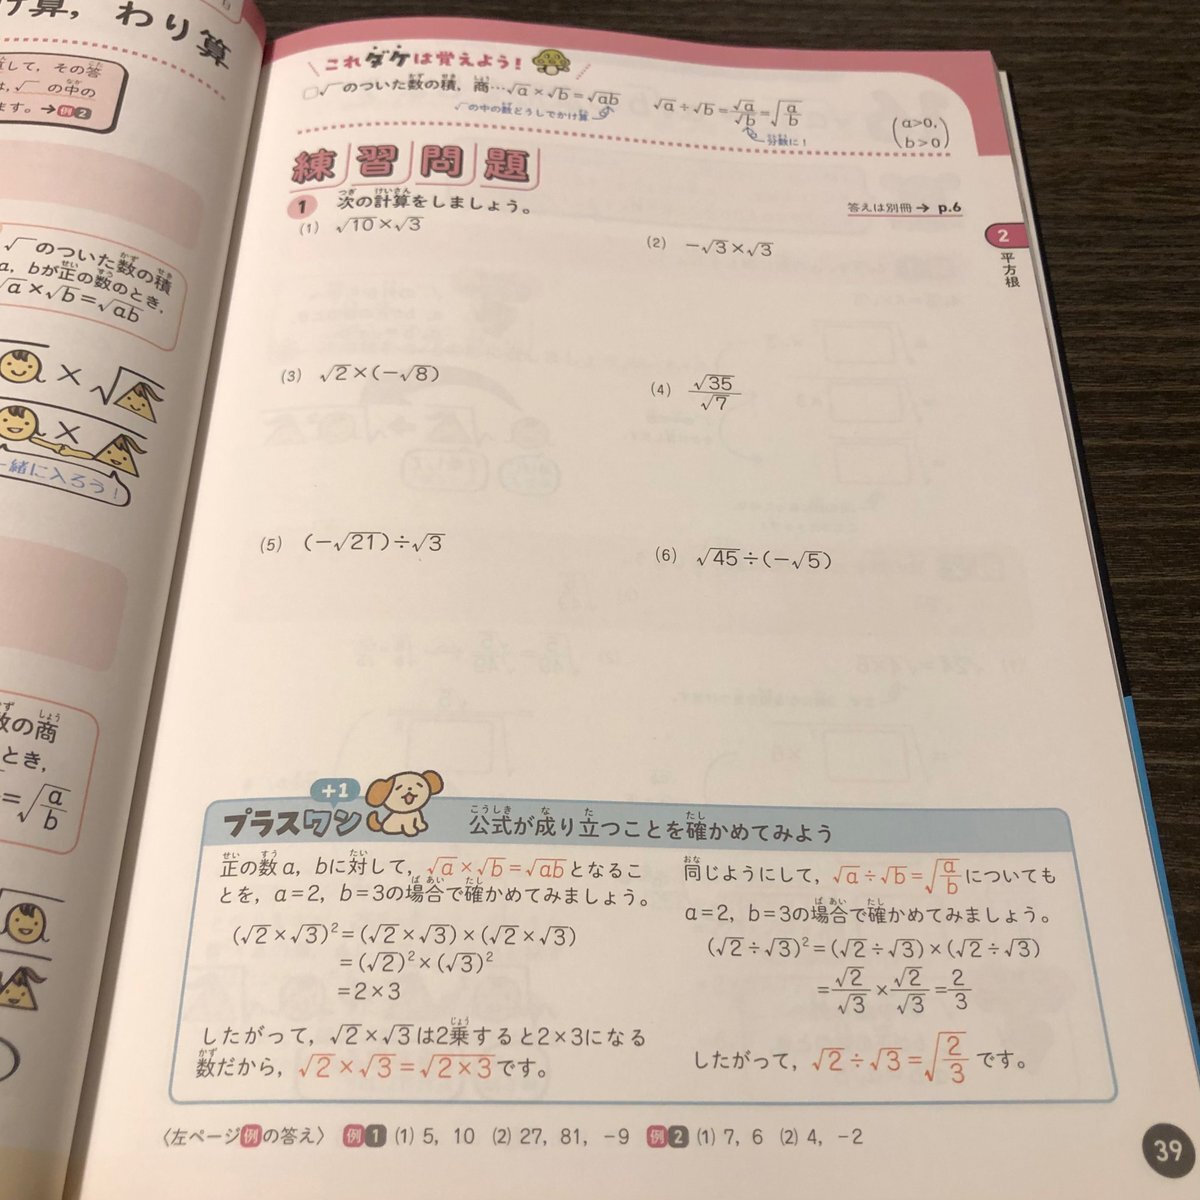 け算，わり算
して，その答
は，√ の中の
ます。→例2
√ のついた数の積
a，bが正の数のとき，
√a×√b=√ab
×√
×
一緒に入ろう！
数の商
とき，
=√a/b
これダケは覚えよう！
□√ のついた数の積，商…√a×√b=√ab √a÷√b=√a/√b=√a/b (a>0, b>0)
√ の中の数どうしでかけ算
分数に！
練習問題
1 次の計算をしましょう。
答えは別冊→ p.6
2
平方根
(1) √10×√3
(2) −√3×√3
(3) √2×(−√8)
(4) √35/√7
(5) (−√21)÷√3
(6) √45÷(−√5)
+1
プラスワン 公式が成り立つことを確かめてみよう
正の数a，bに対して，√a×√b=√abとなるこ
とを，a=2，b=3の場合で確かめてみましょう。
(√2×√3)²=(√2×√3)×(√2×√3)
=(√2)²×(√3)²
=2×3
したがって，√2×√3は2乗すると2×3になる
数だから，√2×√3=√2×3です。
同じようにして，√a÷√b=√a/bについても
a=2，b=3の場合で確かめてみましょう。
(√2÷√3)²=(√2÷√3)×(√2÷√3)
=√2/√3×√2/√3=2/3
したがって，√2÷√3=√2/3です。
〈左ページ例の答え〉 例1 (1) 5，10 (2) 27，81，−9 例2 (1) 7，6 (2) 4，−2
39